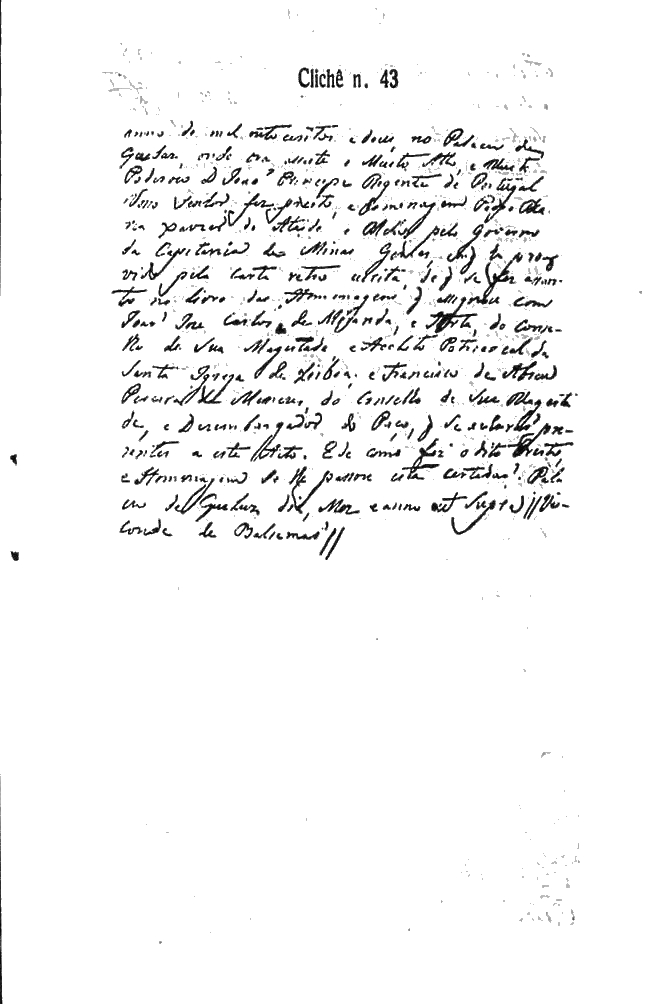 Clichê n. 43
anno de mil oito centos e dous, no Palacio de
Queluz, onde ora asiste o Muito Alto, e Muito
Poderoso D Joaõ Principe Regente de Portugal
Nosso Senhor fez preito, e homenagem Pedro Ma-
ria Xavier de Ataide e Mello pelo Governo
da Capitania de Minas Geraes em q̃ he prov
vido pela carta retro escrita de q̃ se fez assen-
to no livro das Homenagens q̃ asignou com
Joaõ Jose Carlos de Miranda, e Horta, do Conse-
lho de Sua Magestade, e Acolito Patriarcal da
Santa Igreja de Lisboa, e Francisco de Abreu
Pereira de Menezes, do Conselho de Sua Magesta
de, e Dezembargador do Paço, q̃ se acharaõ pre-
zentes a este Acto. E de como fez o dito Preito,
e Homenagem se lhe passou esta certidaõ. Pala
cio de Queluz, dia, Mez e anno ut Supra // Vis-
conde de Balsemaõ //